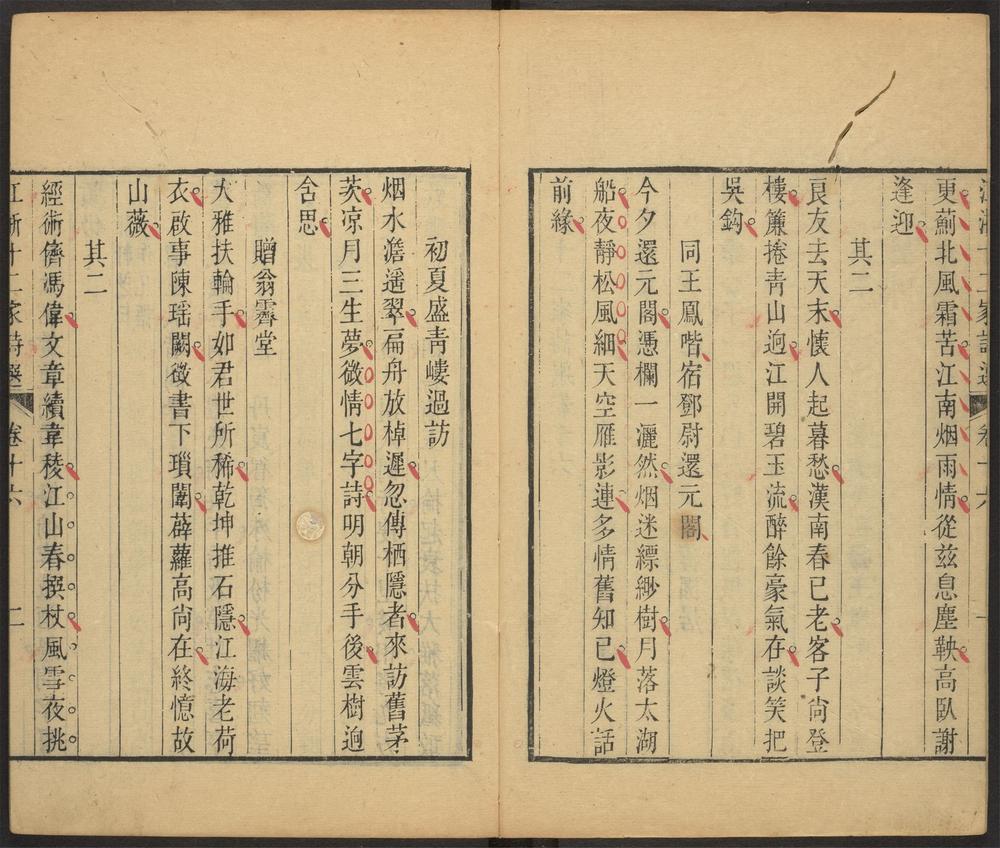 江浙十二家詩選 卷十六 一
更薊北風霜苦江南烟雨情從兹息塵鞅高臥謝
逢迎
其二
良友去天末懷人起暮愁漢南春已老客子尙登
樓簾捲靑山逈江開碧玉流醉餘豪氣存談笑把
吳鈎
同王鳳喈宿鄧尉還元閣
今夕還元閣憑欄一灑然烟迷縹緲樹月落太湖
船夜靜松風細天空雁影連多情舊知已燈火話
前緣
初夏盛靑嶁過訪
烟水澹遥翠扁舟放棹遲忽傳栖隱者來訪舊茅
茨凉月三生夢微情七字詩明朝分手後雲樹逈
含思
贈翁霽堂
大雅扶輪手如君世所稀乾坤推石隱江海老荷
衣啟事陳瑶闕徵書下瑣闈薜蘿高尙在終憶故
山薇
其二
經術儕馮偉文章續韋稜江山春撰杖風雪夜挑
江浙十二家詩選 卷十六 二